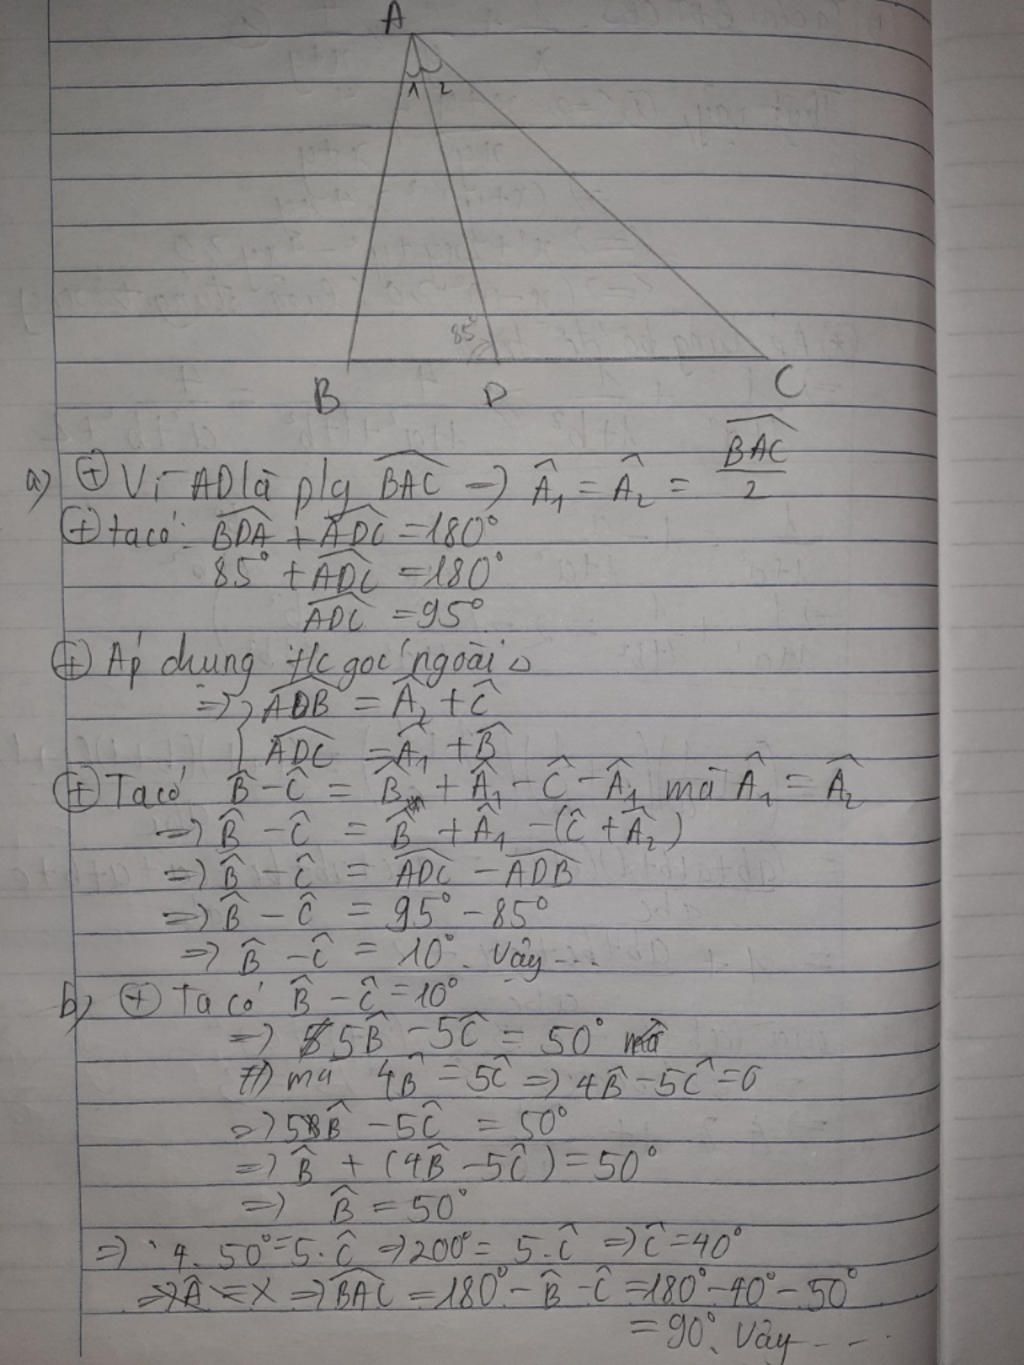 A
1 2
85°
B D C
a) ⊕ Vì AD là p/g \widehat{BAC} → \hat{A}₁ = \hat{A}₂ = \frac{\widehat{BAC}}{2}
⊕ ta có: \widehat{BDA} + \widehat{ADC} = 180°
85° + \widehat{ADC} = 180°
\widehat{ADC} = 95°
⊕ Áp chung t/c góc ngoài △
=> { \widehat{ADB} = \hat{A}₂ + \hat{C}
\widehat{ADC} = \hat{A}₁ + \hat{B}
⊕ Ta có \hat{B} - \hat{C} = \hat{B} + \hat{A}₁ - \hat{C} - \hat{A}₁ mà \hat{A}₁ = \hat{A}₂
=> \hat{B} - \hat{C} = \hat{B} + \hat{A}₁ - (\hat{C} + \hat{A}₂)
=> \hat{B} - \hat{C} = \widehat{ADC} - \widehat{ADB}
=> \hat{B} - \hat{C} = 95° - 85°
=> \hat{B} - \hat{C} = 10°. Vậy ...
b) ⊕ Ta có \hat{B} - \hat{C} = 10°
=> 5\hat{B} - 5\hat{C} = 50°
mà 4\hat{B} = 5\hat{C} => 4\hat{B} - 5\hat{C} = 0
=> 5\hat{B} - 5\hat{C} = 50°
=> \hat{B} + (4\hat{B} - 5\hat{C}) = 50°
=> \hat{B} = 50°
=> 4. 50° = 5. \hat{C} => 200° = 5. \hat{C} => \hat{C} = 40°
=> \widehat{BAC} = 180° - \hat{B} - \hat{C} = 180° - 40° - 50°
= 90°. Vậy ...